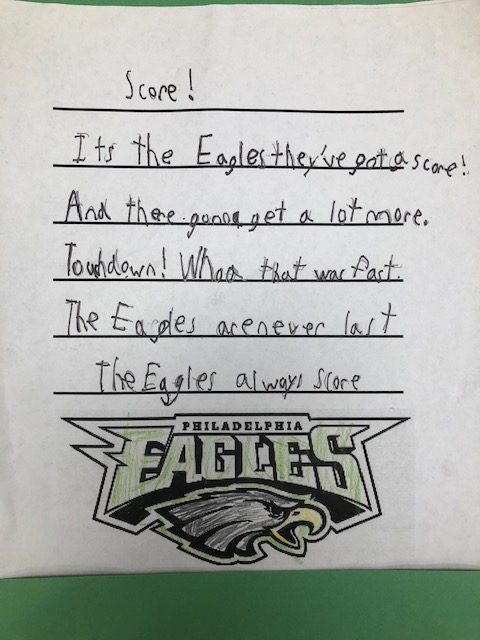 Score!
Its the Eagles they've got a score!
And there gonna get a lot more.
Touchdown! Whoa that was fast.
The Eagles are never last
The Eagles always score
PHILADELPHIA
EAGLES